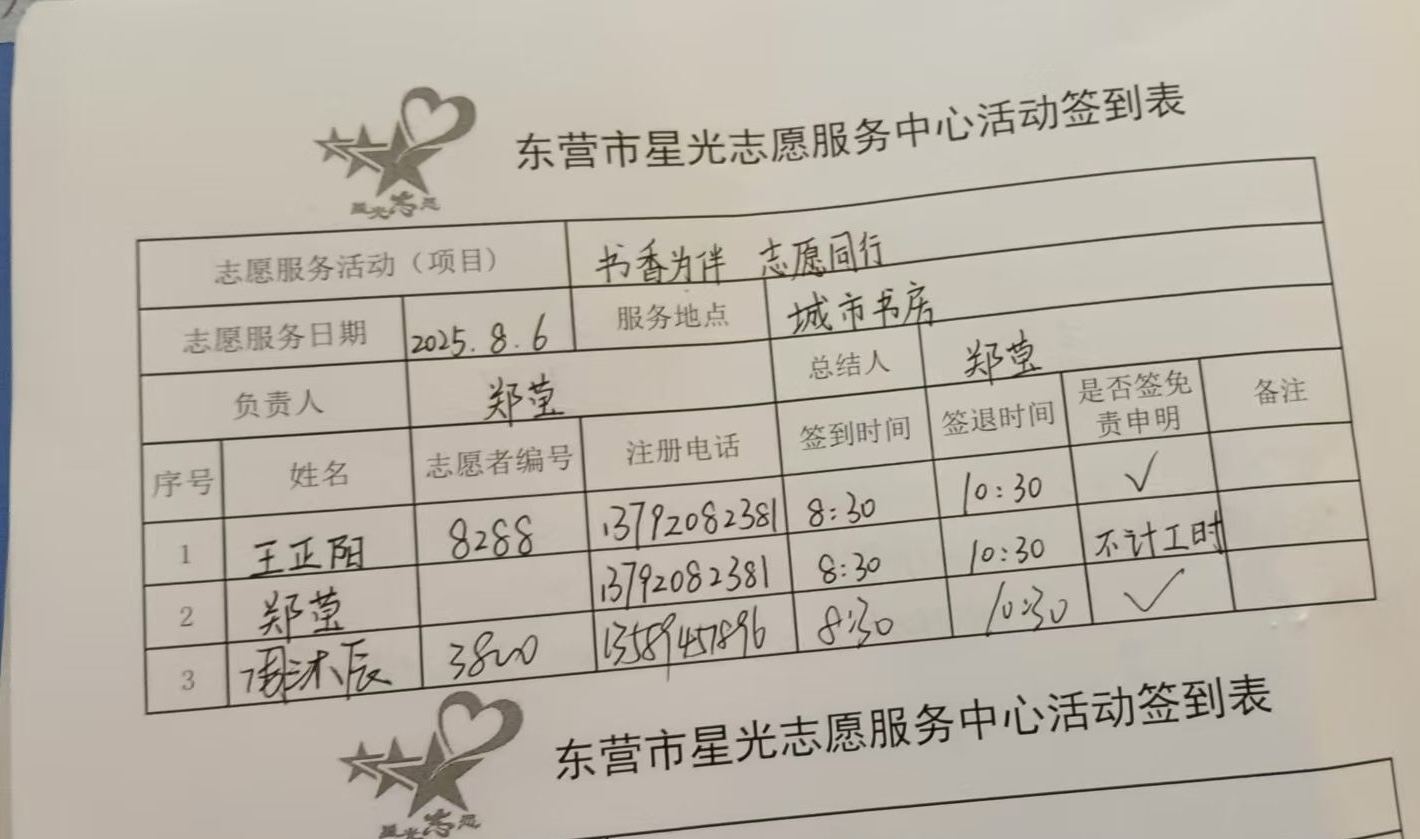 东营市星光志愿服务中心活动签到表
星光志愿
志愿服务活动（项目） 书香为伴 志愿同行
志愿服务日期 2025.8.6 服务地点 城市书房
负责人 郑莹 总结人 郑莹
序号 姓名 志愿者编号 注册电话 签到时间 签退时间 是否签免责申明 备注
1 王正阳 8288 13792082381 8:30 10:30 ✓
2 郑莹 13792082381 8:30 10:30 不计工时
3 周沐辰 3800 13589457896 8:30 10:30 ✓
东营市星光志愿服务中心活动签到表
星光志愿